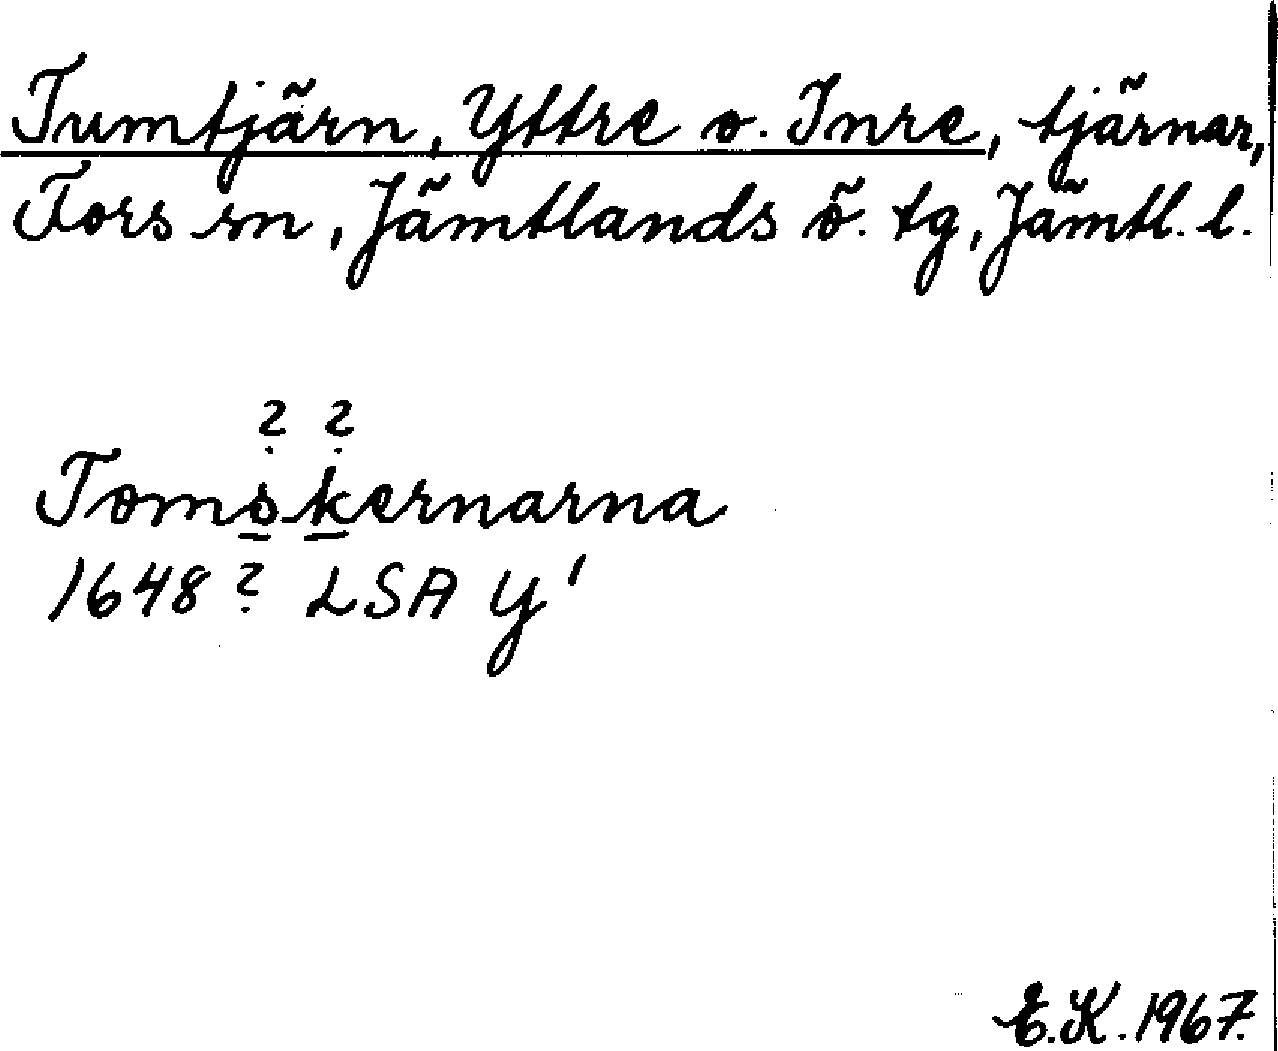 Tumtjärn, Yttre o. Inre, tjärnar,
Fors sn, Jämtlands ö. tg, Jämtl. l.
? ?
Tomskernarna
1648? LSA Y'
E.K. 1967.